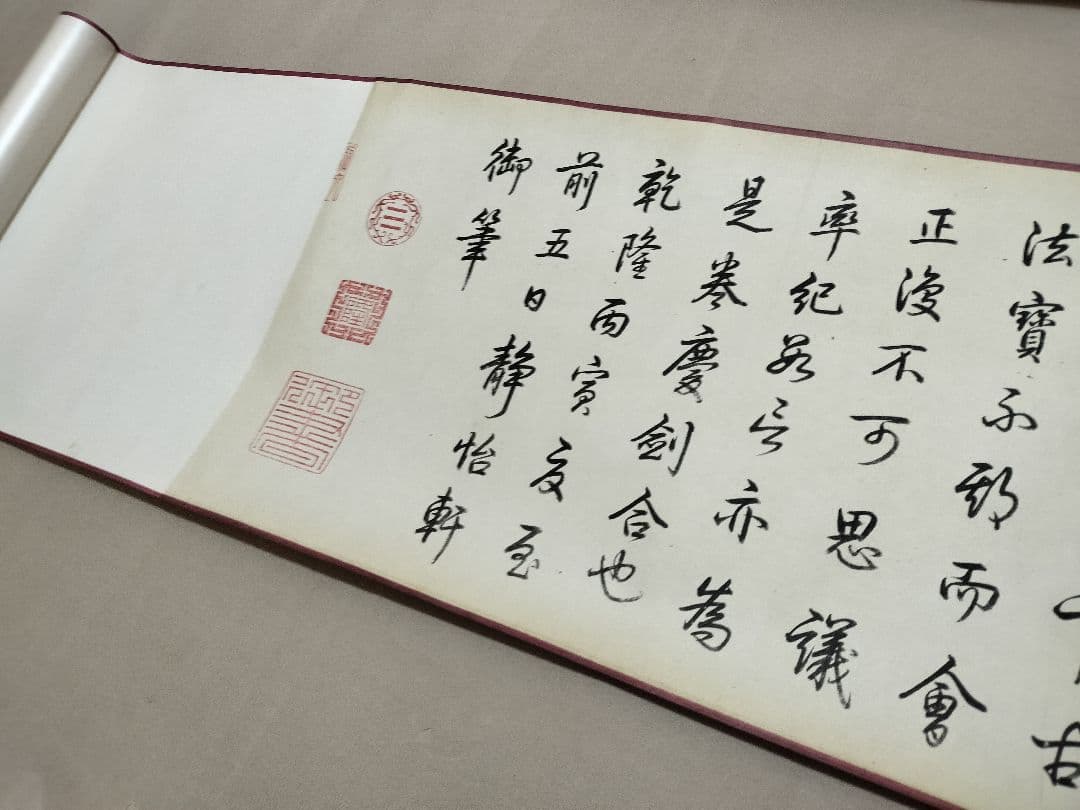 古
法寶不期而會
正復不可思議
率紀數言亦為
是卷慶劍合也
乾隆丙寅夏至
前五日靜怡軒
御筆